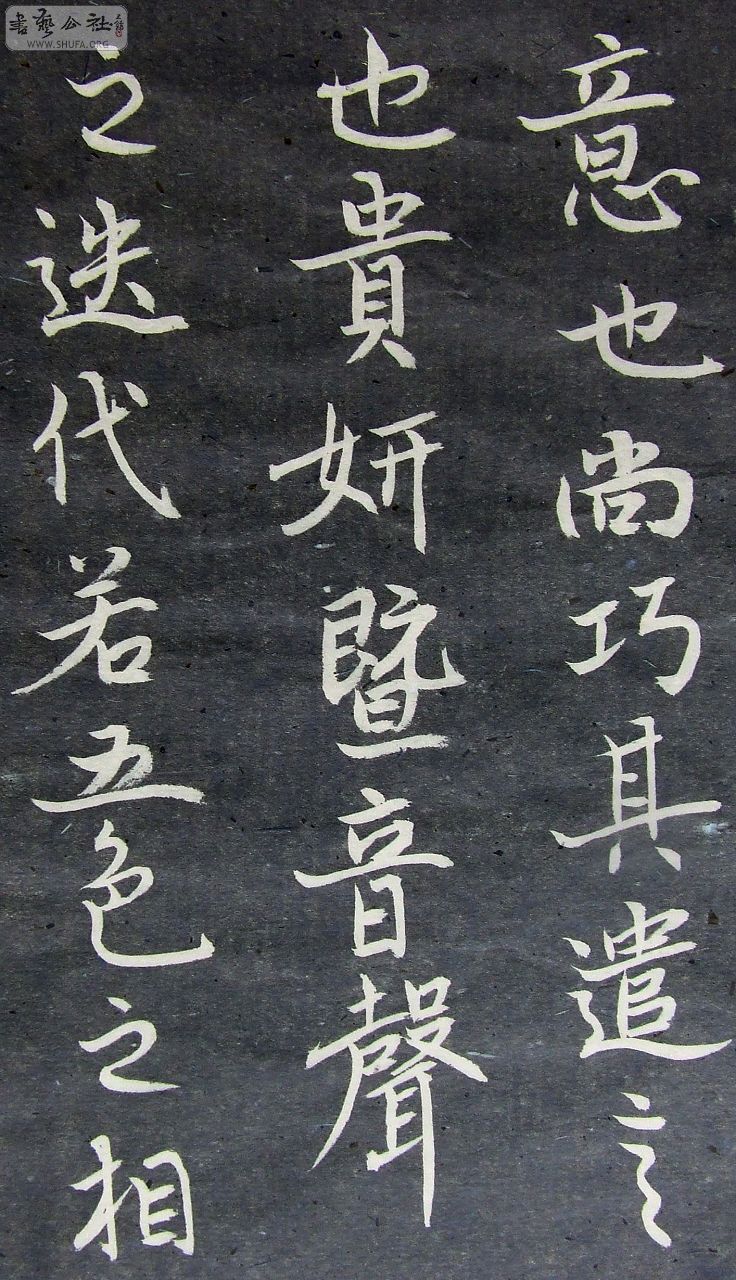 意也尚巧其遣言
也貴妍暨音聲
之迭代若五色之相
書藝公社
WWW.SHUFA.ORG